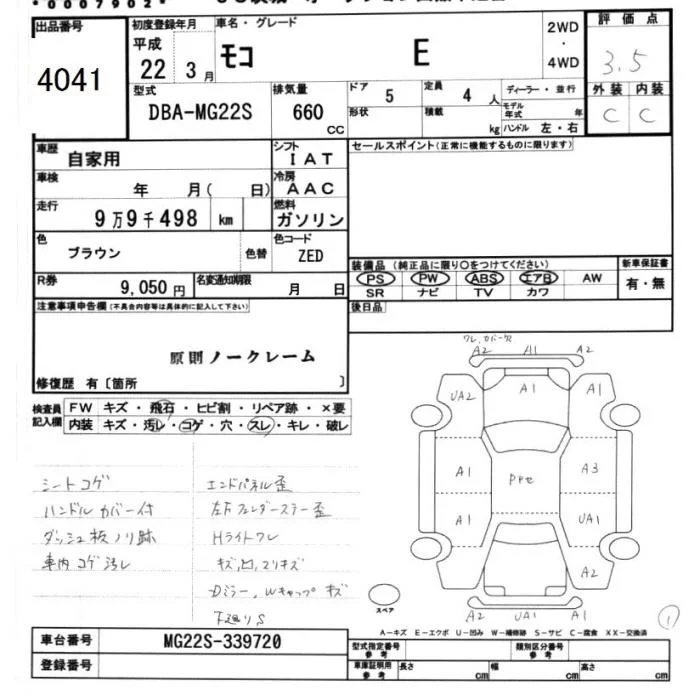 *0007902*
出品番号
4041
初度登録年月
平成
22 3月
車名・グレード
モコ E
2WD
・
4WD
評価点
3.5
外装 内装
C C
型式
DBA-MG22S
排気量
660
CC
ドア 5
形状
定員 4 人
積載 kg
ディーラー・並行
モデル年式 年
ハンドル 左・右
車歴
自家用
シフト
IAT
車検
年 月( 日)
冷房
AAC
走行
9万9千498 km
燃料
ガソリン
色
ブラウン
色替
色コード
ZED
R券
9,050円
名変通知期限
月 日
セールスポイント(正常に機能するものに限ります)
装備品(純正品に限り○をつけてください)
PS PW ABS エアB AW
SR ナビ TV カワ
新車保証書
有・無
後日品
注意事項申告欄(不具合内容等は具体的に記入して下さい)
原則ノークレーム
修復歴 有〔箇所 〕
検査員
記入欄
FW キズ・飛石・ヒビ割・リペア跡・×要
内装 キズ・汚レ・コゲ・穴・スレ・キレ・破レ
シートコゲ
ハンドルカバー付
ダッシュ板ノリ跡
車内コゲ汚レ
エンドパネル歪
左Fフェンダーステー歪
Hライトワレ
キズ,凹,スリキズ
Dミラー,Wキャップキズ
下廻りS
ワレ,カバー欠
A2 A1 A2
UA2 A1 A1
A1 PPe A3
A1 UA1
A2
A2 UA1 A1
スペア
1
A-キズ E-エクボ U-凹み W-補修跡 S-サビ C-腐食 XX-交換済
車台番号
MG22S-339720
登録番号
型式指定番号
参考
類別区分番号
参考
車庫証明用
参考
長さ cm 幅 cm 高さ cm